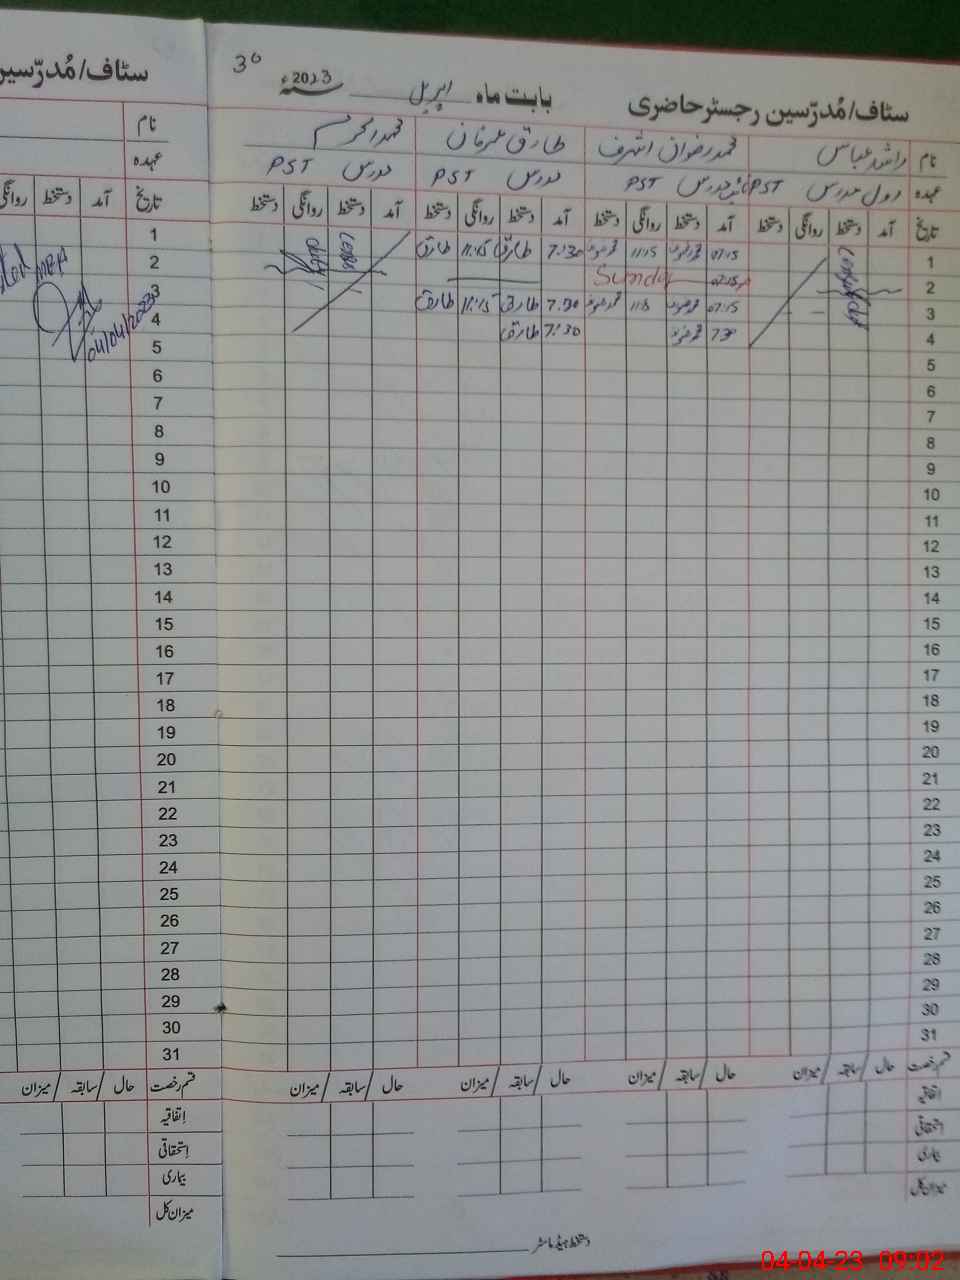 سٹاف/مُدرّسین رجسٹر حاضری بابت ماہ اپریل 2023ء 30
نام راشد عباس محمد رضوان اشرف طارق عرفان
عہدہ PST مدرس PST مدرس PST مدرس PST
تاریخ آمد دستخط روانگی دستخط آمد دستخط روانگی دستخط آمد دستخط روانگی دستخط آمد دستخط روانگی دستخط
1 07:15 11:15 7:30 طارق 11:15 طارق
2 07:15 Sunday
3 07:15 7:30 طارق 11:15 طارق
4 7:30 7:30 طارق
5
6
7
8
9
10
11
12
13
14
15
16
17
18
19
20
21
22
23
24
25
26
27
28
29
30
31
قسم رخصت حال / سابقہ / میزان حال / سابقہ / میزان حال / سابقہ / میزان حال / سابقہ / میزان
اتفاقیہ
استحقاقی
بیماری
میزان کل
دستخط ہیڈ ماسٹر
سٹاف/مُدرّسین
نام
عہدہ
تاریخ آمد دستخط روانگی
1
2
3
4
04/04/2023
5
6
7
8
9
10
11
12
13
14
15
16
17
18
19
20
21
22
23
24
25
26
27
28
29
30
31
قسم رخصت حال / سابقہ / میزان
اتفاقیہ
استحقاقی
بیماری
میزان کل
04-04-23 09:02